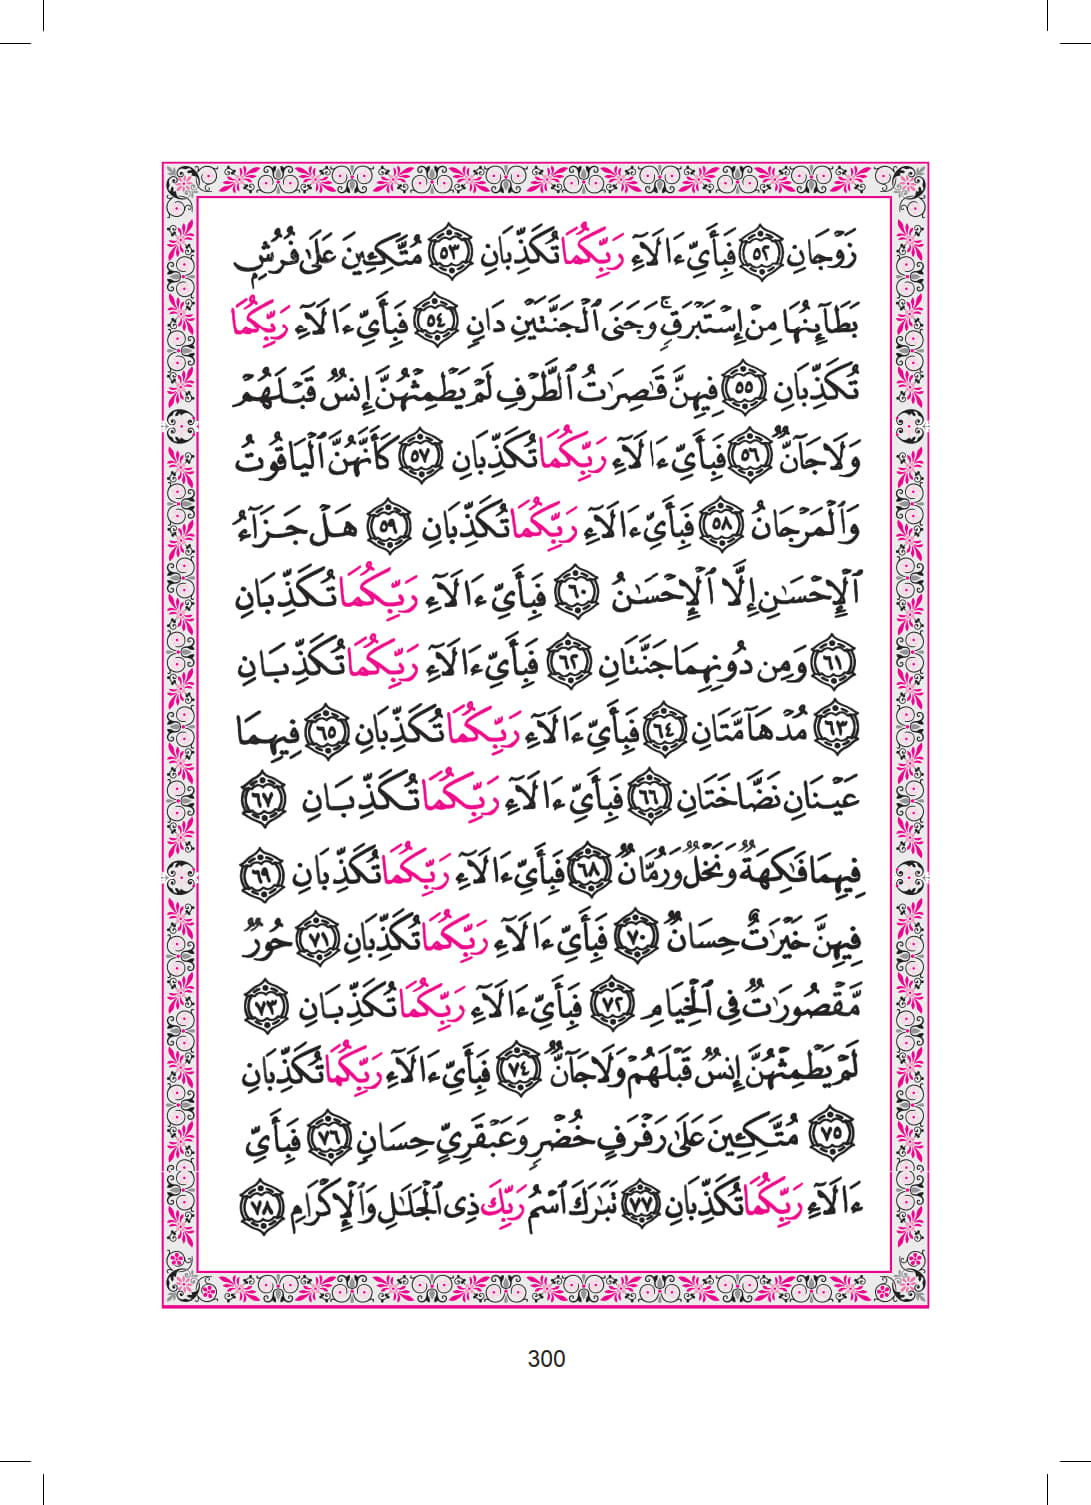 زَوْجَانِ ٥٢ فَبِأَيِّ ءَالَآءِ رَبِّكُمَا تُكَذِّبَانِ ٥٣ مُتَّكِـِٔينَ عَلَىٰ فُرُشٍۭ
بَطَآئِنُهَا مِنْ إِسْتَبْرَقٍۢ ۚ وَجَنَى ٱلْجَنَّتَيْنِ دَانٍ ٥٤ فَبِأَيِّ ءَالَآءِ رَبِّكُمَا
تُكَذِّبَانِ ٥٥ فِيهِنَّ قَٰصِرَٰتُ ٱلطَّرْفِ لَمْ يَطْمِثْهُنَّ إِنسٌ قَبْلَهُمْ
وَلَا جَآنٌّ ٥٦ فَبِأَيِّ ءَالَآءِ رَبِّكُمَا تُكَذِّبَانِ ٥٧ كَأَنَّهُنَّ ٱلْيَاقُوتُ
وَٱلْمَرْجَانُ ٥٨ فَبِأَيِّ ءَالَآءِ رَبِّكُمَا تُكَذِّبَانِ ٥٩ هَلْ جَزَآءُ
ٱلْإِحْسَٰنِ إِلَّا ٱلْإِحْسَٰنُ ٦٠ فَبِأَيِّ ءَالَآءِ رَبِّكُمَا تُكَذِّبَانِ
٦١ وَمِن دُونِهِمَا جَنَّتَانِ ٦٢ فَبِأَيِّ ءَالَآءِ رَبِّكُمَا تُكَذِّبَانِ
٦٣ مُدْهَآمَّتَانِ ٦٤ فَبِأَيِّ ءَالَآءِ رَبِّكُمَا تُكَذِّبَانِ ٦٥ فِيهِمَا
عَيْنَانِ نَضَّاخَتَانِ ٦٦ فَبِأَيِّ ءَالَآءِ رَبِّكُمَا تُكَذِّبَانِ ٦٧
فِيهِمَا فَٰكِهَةٌ وَنَخْلٌ وَرُمَّانٌ ٦٨ فَبِأَيِّ ءَالَآءِ رَبِّكُمَا تُكَذِّبَانِ ٦٩
فِيهِنَّ خَيْرَٰتٌ حِسَانٌ ٧٠ فَبِأَيِّ ءَالَآءِ رَبِّكُمَا تُكَذِّبَانِ ٧١ حُورٌ
مَّقْصُورَٰتٌ فِى ٱلْخِيَامِ ٧٢ فَبِأَيِّ ءَالَآءِ رَبِّكُمَا تُكَذِّبَانِ ٧٣
لَمْ يَطْمِثْهُنَّ إِنسٌ قَبْلَهُمْ وَلَا جَآنٌّ ٧٤ فَبِأَيِّ ءَالَآءِ رَبِّكُمَا تُكَذِّبَانِ
٧٥ مُتَّكِـِٔينَ عَلَىٰ رَفْرَفٍ خُضْرٍۢ وَعَبْقَرِيٍّ حِسَانٍ ٧٦ فَبِأَيِّ
ءَالَآءِ رَبِّكُمَا تُكَذِّبَانِ ٧٧ تَبَٰرَكَ ٱسْمُ رَبِّكَ ذِى ٱلْجَلَٰلِ وَٱلْإِكْرَامِ ٧٨
300